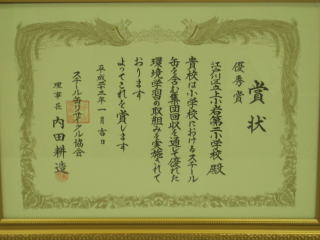 賞状
優秀賞
江戸川区立上小岩第二小学校 殿
貴校は小学校におけるスチール
缶を含む集団回収を通じ優れた
環境学習の取組みを実施されて
おります
よってこれを賞します
平成二十三年一月吉日
スチール缶リサイクル協会
理事長 内田耕造